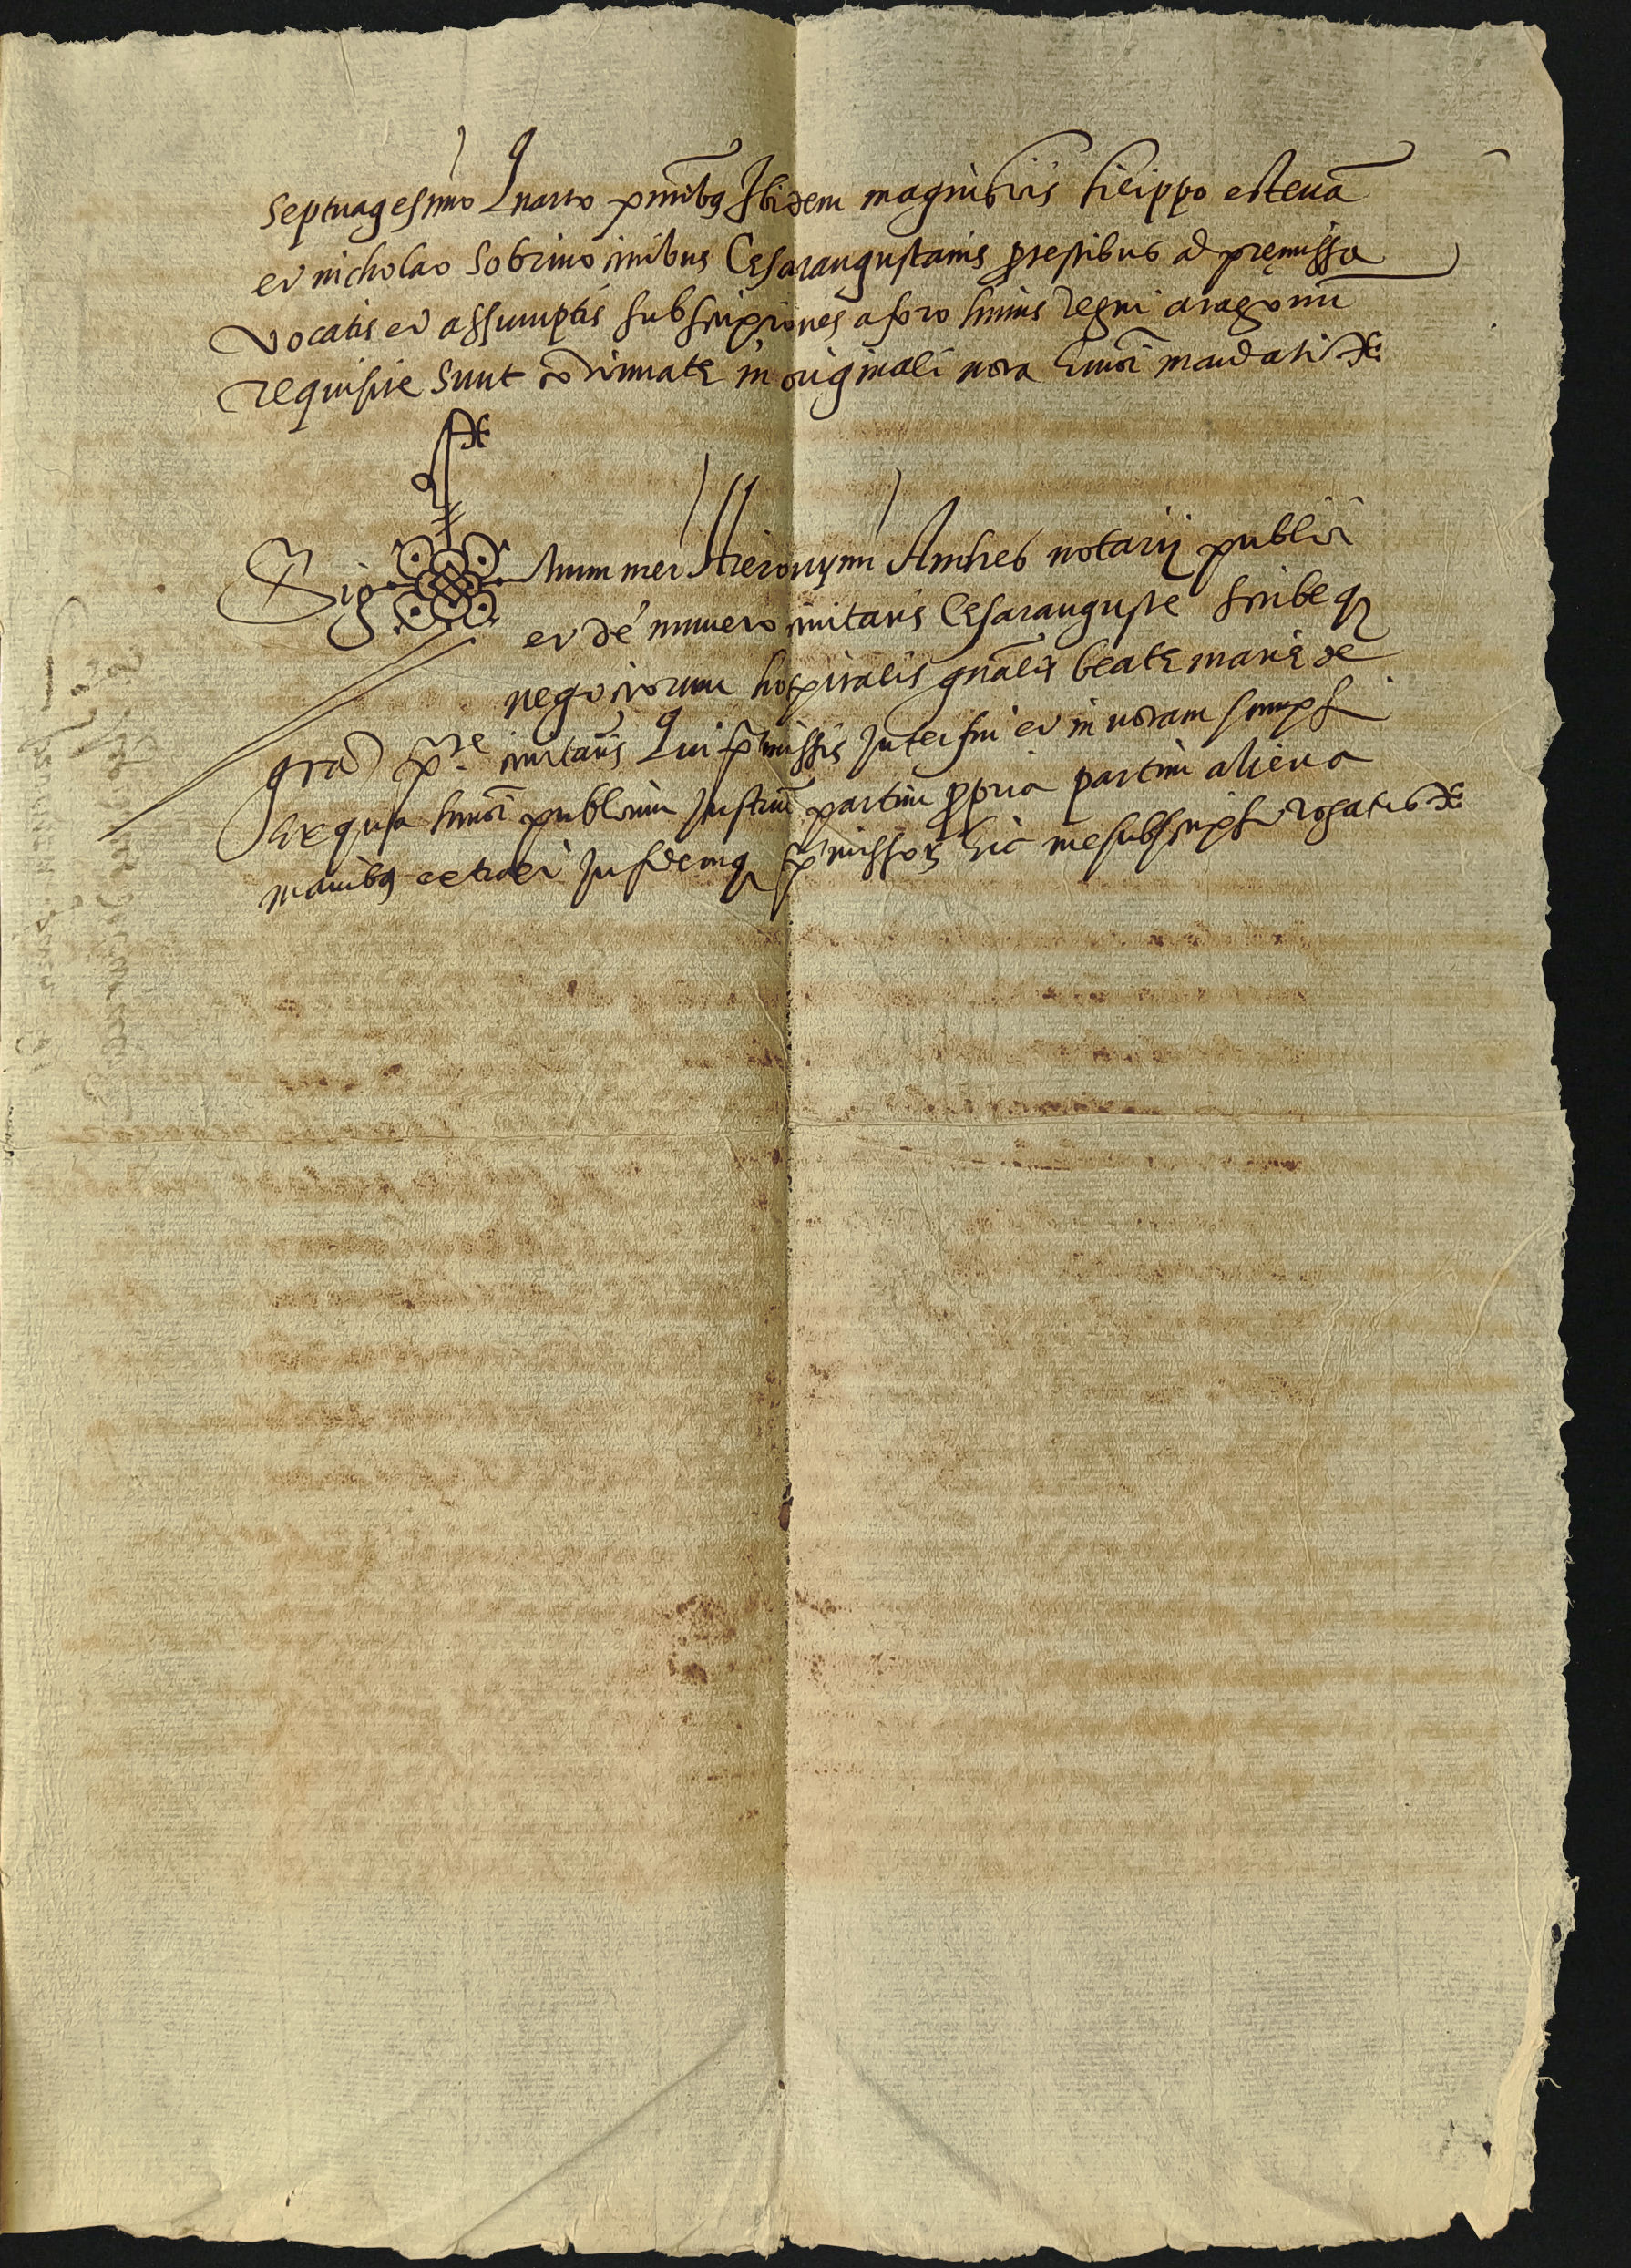 septuagesimo Quarto pñtibꝫ Ibidem magnificis Filippo esteuã
et nicholao sobrino ciuibus Cesaraugustanis ꝓ testibus ad pręmissa
vocatis et assumptis subscriptiones a foro huius regni aragonũ
requisite sunt cõtinuatę in originali nota huiõi mandati
Sig num mei Hieronymi Andres notarij publici
et de numero ciuitatis Cesarauguste scribeqꝫ
negociorum hospitalis gñalis beatę marię de
grã p.te ciuitatis Qui p̃missis interfui et in notam sumpsi
Ex qua huiõi publicum Instrum̃ partim ꝓpria partim aliena
manibꝫ extraxi In fidemqꝫ p̃missoꝝ hic me subscripsi rogatus